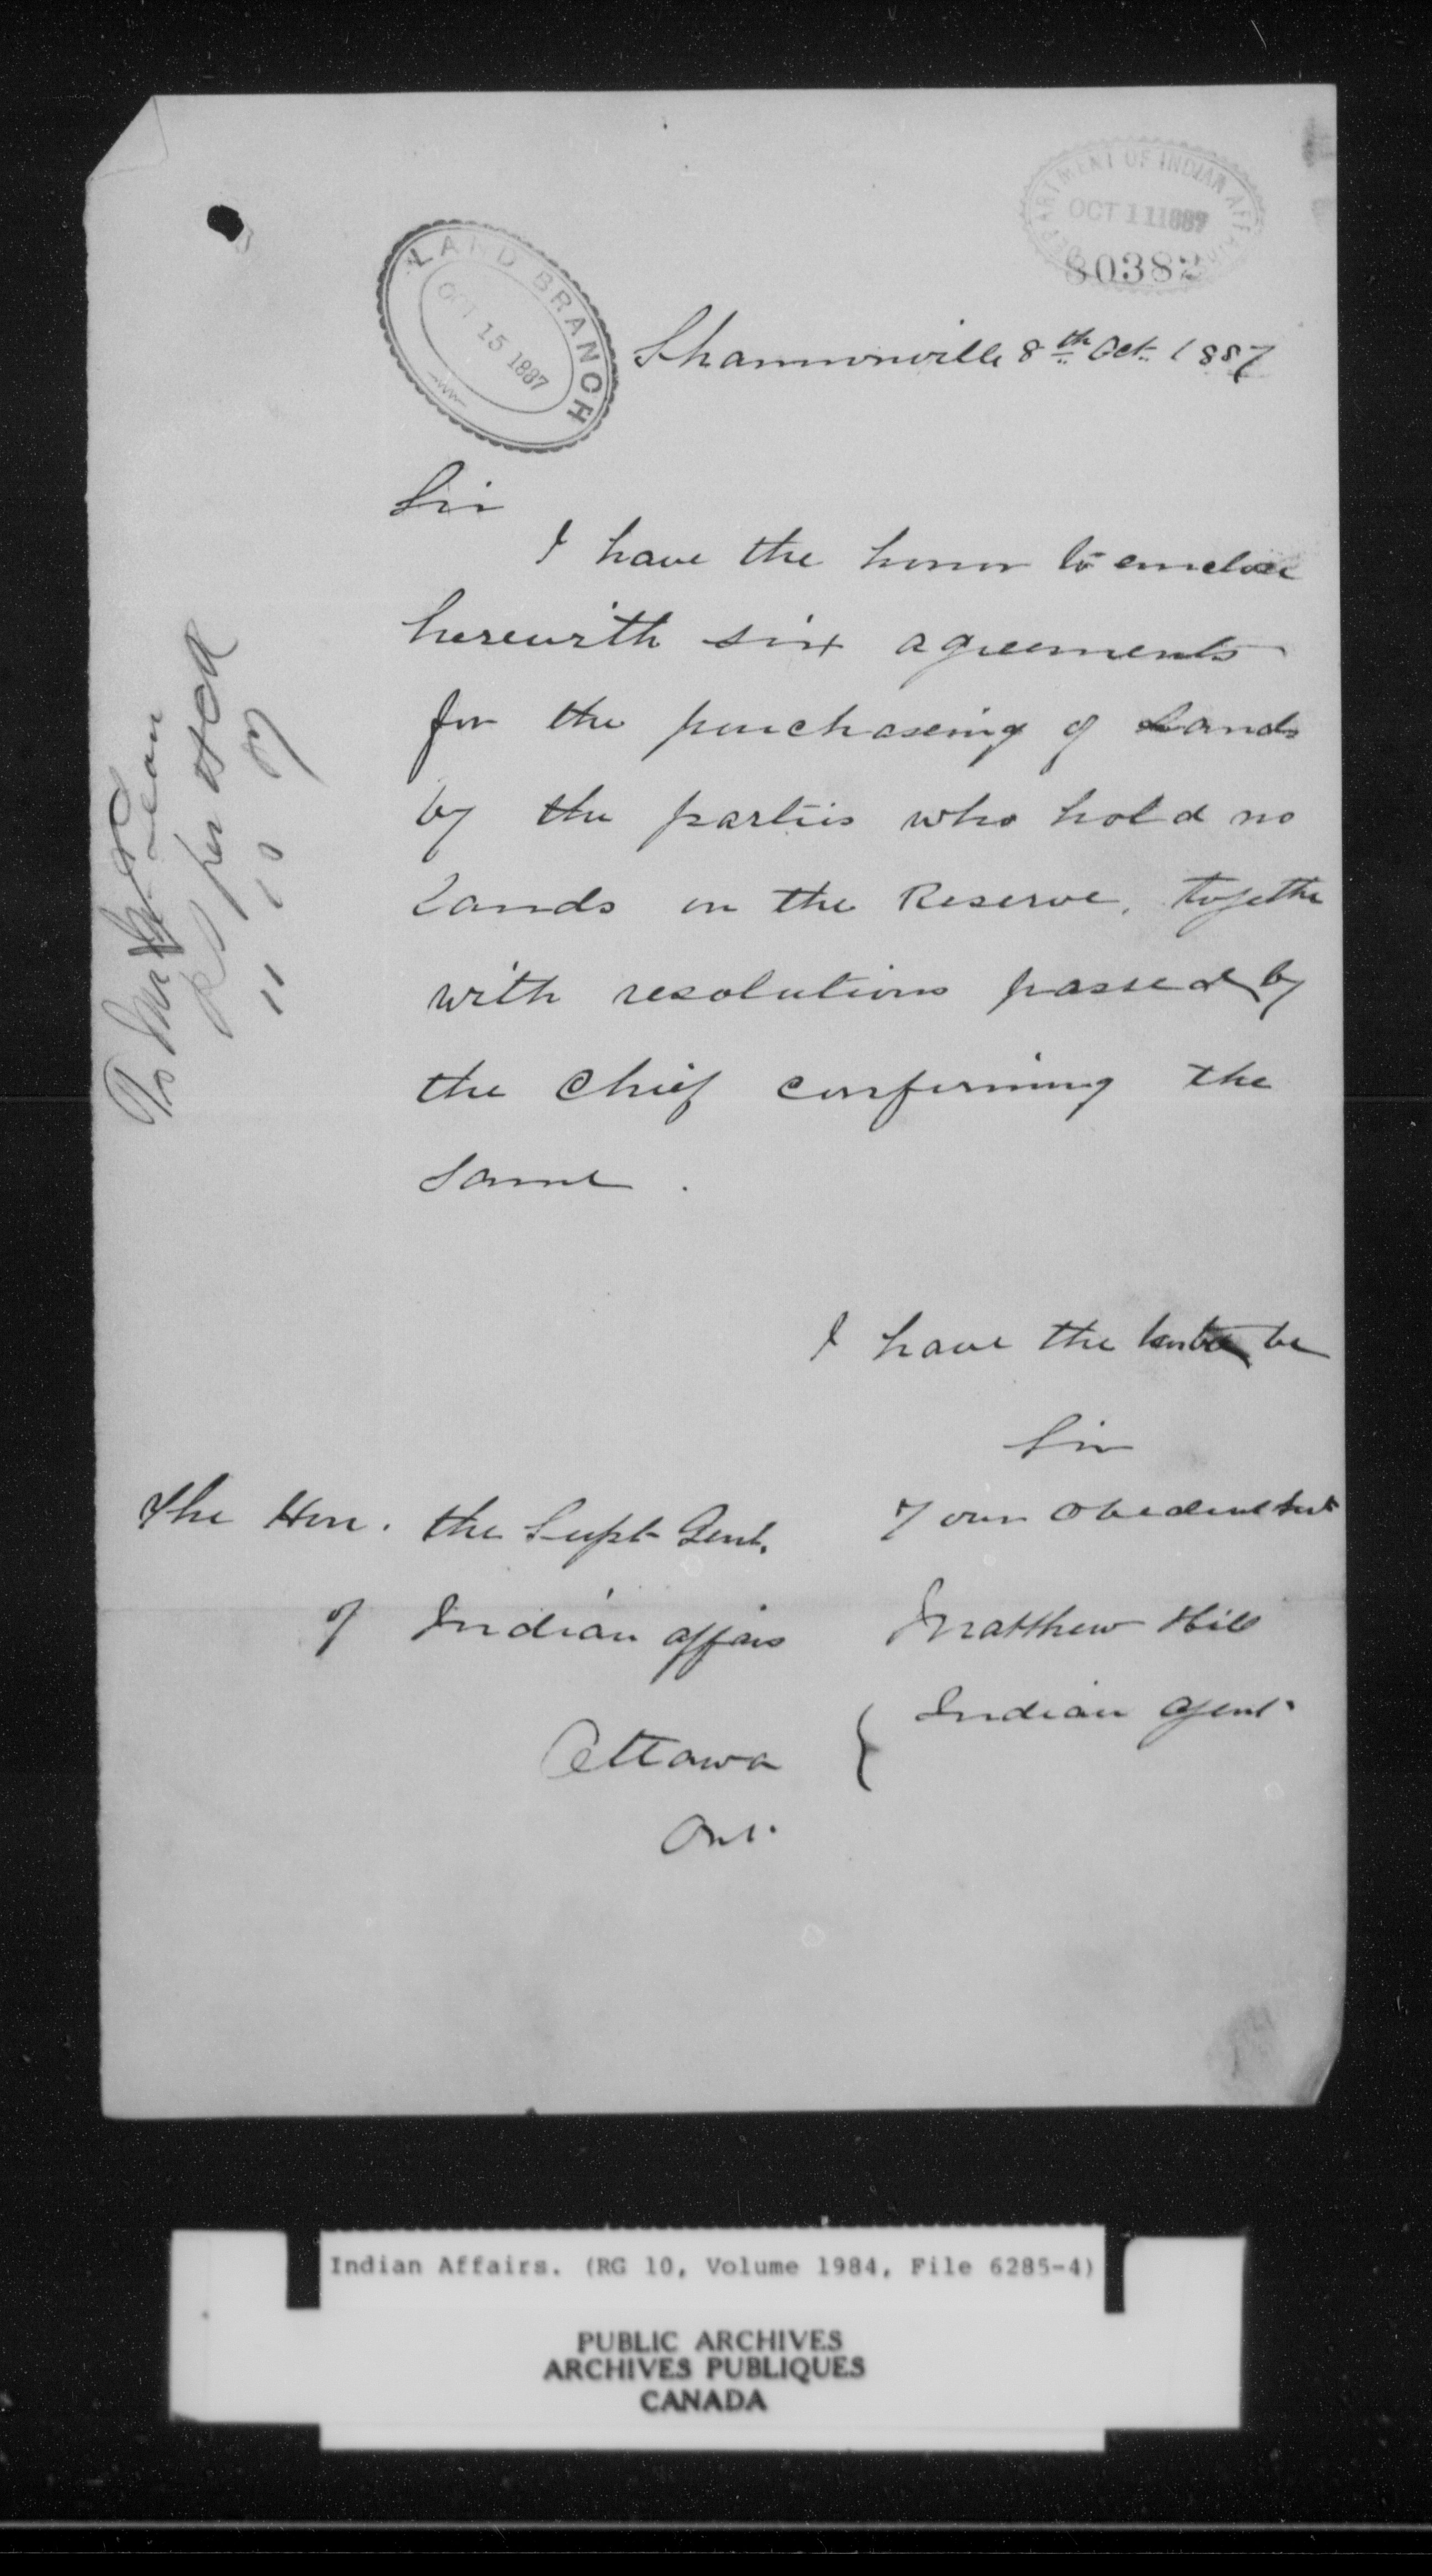 DEPARTMENT OF INDIAN AFFAIRS
OCT 11 1887
80382
LAND BRANCH
OCT 15 1887
Shannonville 8th Oct. 1887
Sir
I have the honor to enclose
herewith six agreements
for the purchaseing of Lands
by the parties who hold no
Lands on the Reserve, together
with resolutions passed by
the Chief confirming the
same.
I have the to be
Sir
Your Obedient Svt
The Hon. the Supt Genl.
of Indian affairs
Matthew Hill
Indian Agent
Ottawa
Ont.
To Mr
per
11 10 87
Indian Affairs. (RG 10, Volume 1984, File 6285-4)
PUBLIC ARCHIVES
ARCHIVES PUBLIQUES
CANADA